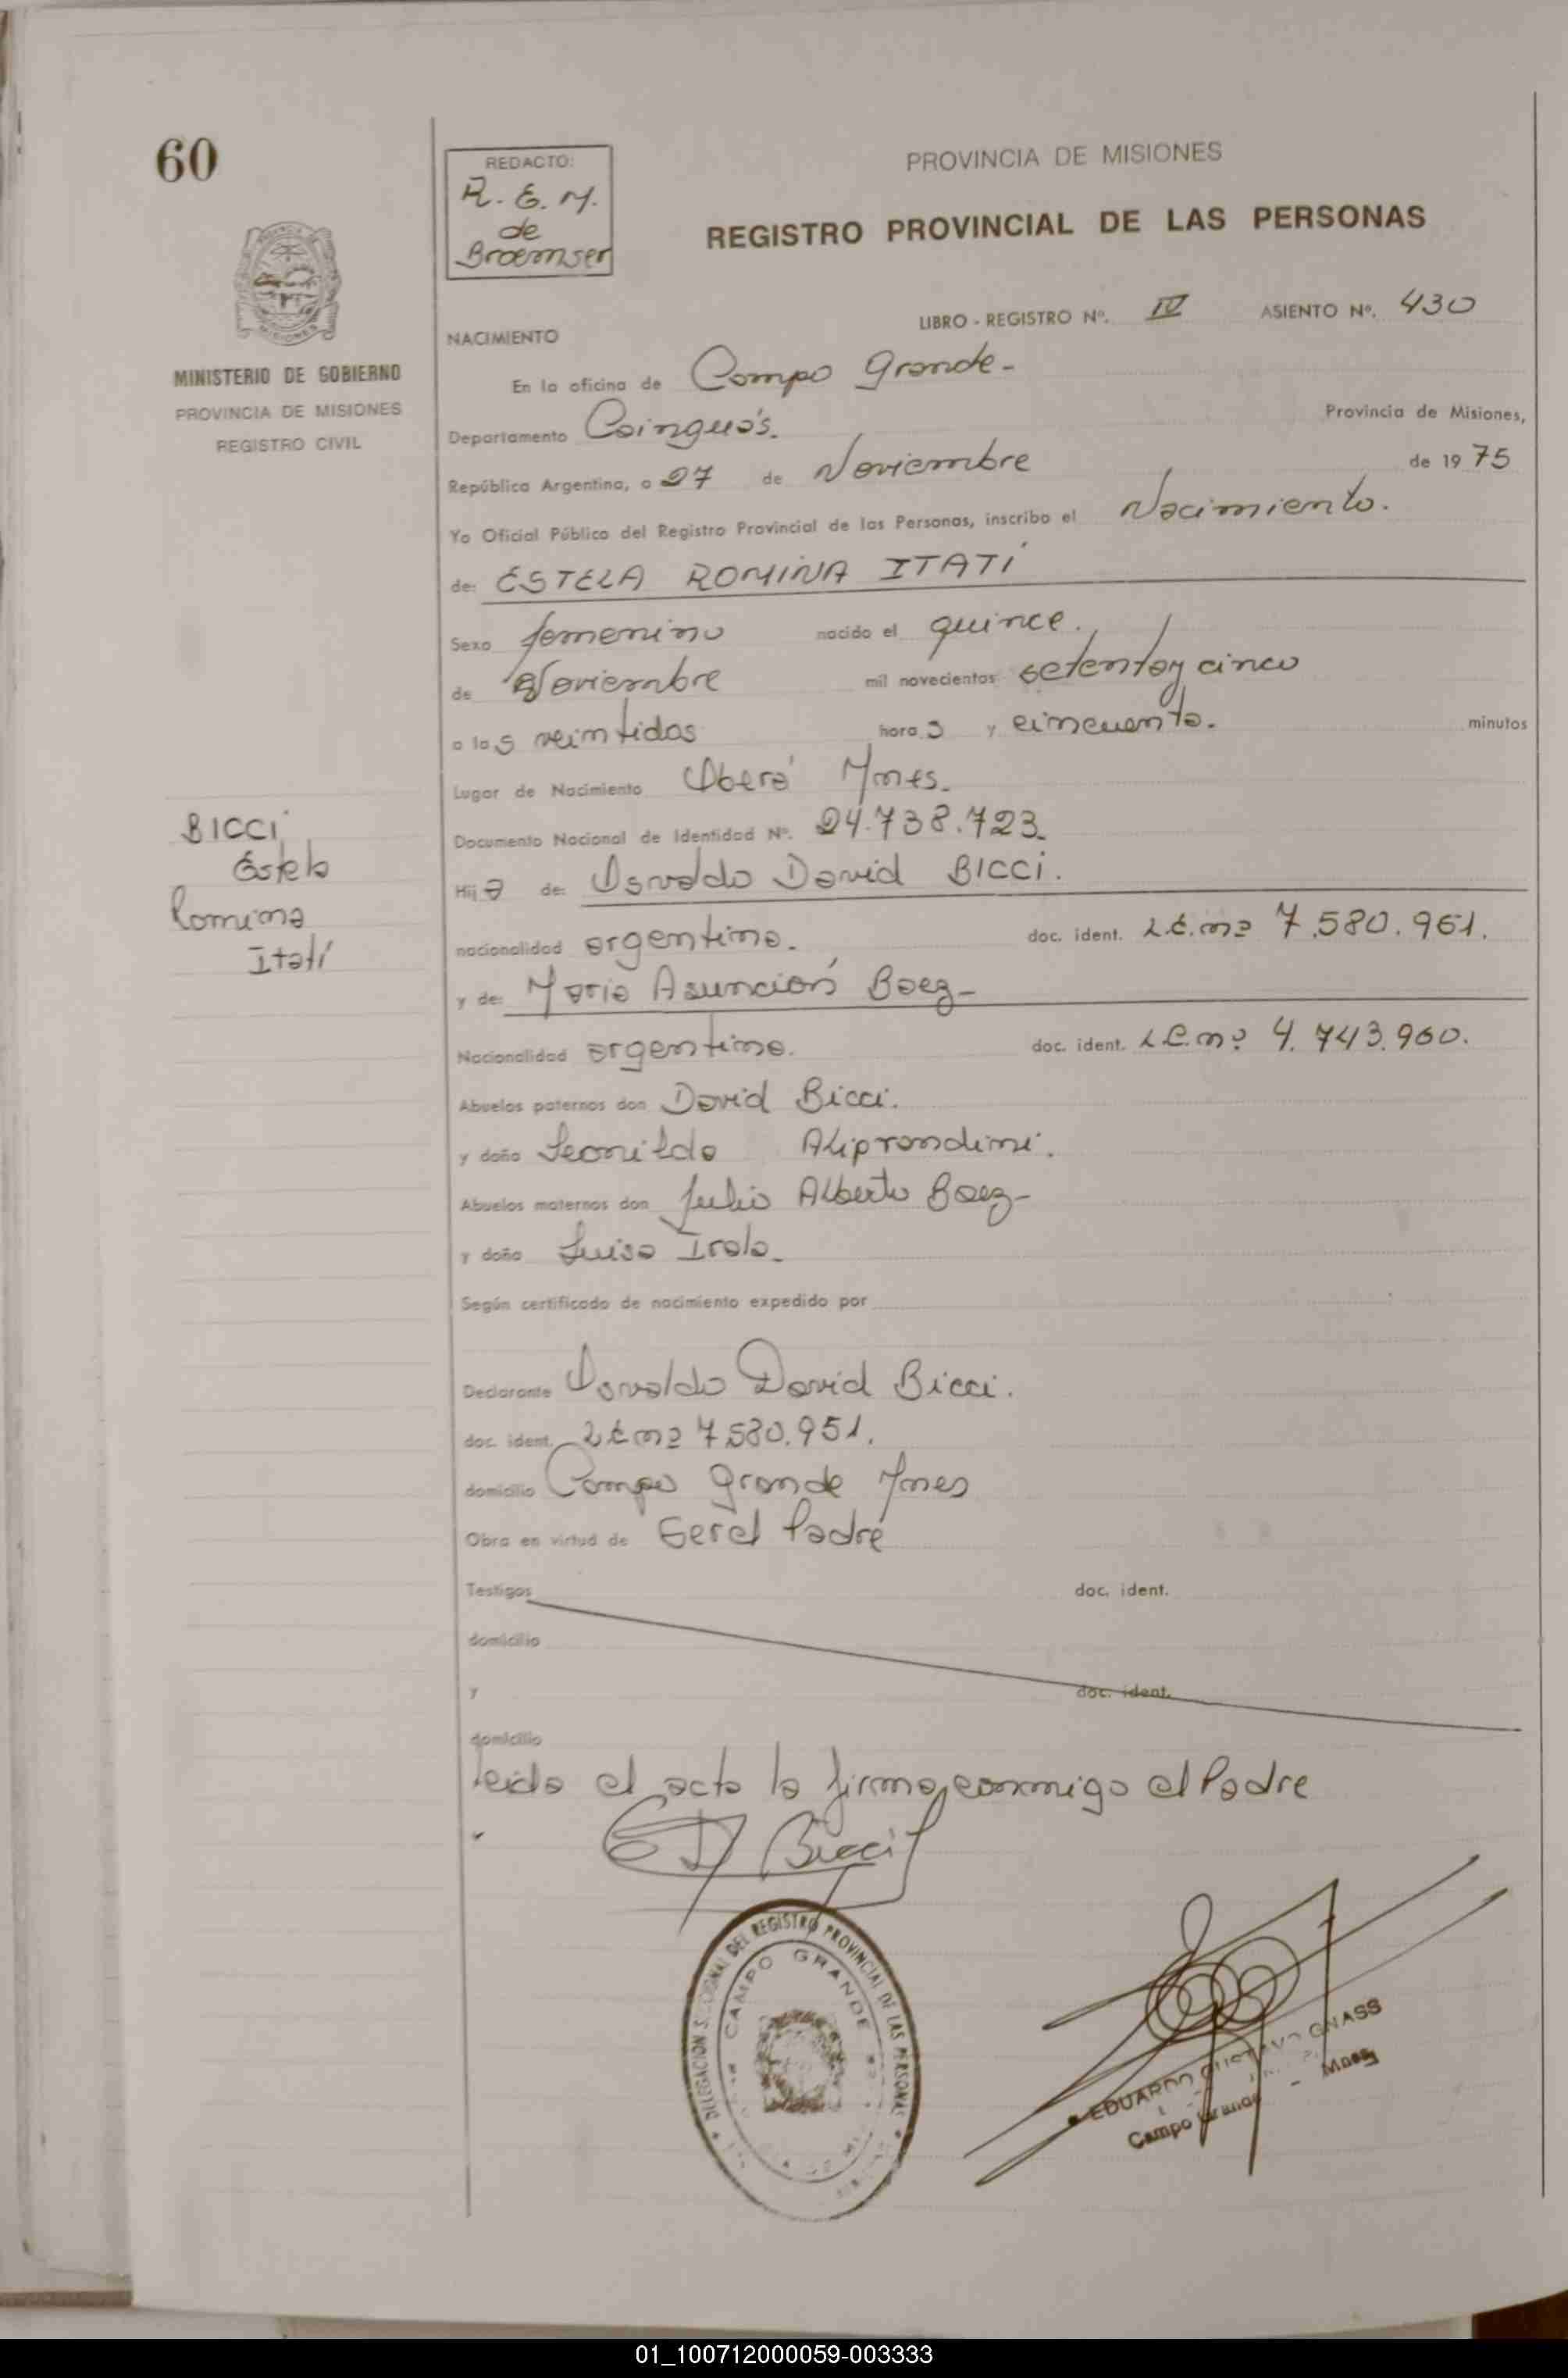 60
REDACTO:
R. E. M.
de
Broemser
PROVINCIA DE MISIONES
REGISTRO PROVINCIAL DE LAS PERSONAS
MINISTERIO DE GOBIERNO
PROVINCIA DE MISIONES
REGISTRO CIVIL
LIBRO - REGISTRO Nº. IV ASIENTO Nº. 430
NACIMIENTO
En la oficina de Campo Grande-
Departamento Cainguás. Provincia de Misiones,
República Argentina, a 27 de Noviembre de 1975
Yo Oficial Público del Registro Provincial de las Personas, inscribo el Nacimiento.
de: ESTELA ROMINA ITATÍ
Sexo femenino nacido el quince.
de Noviembre mil novecientos setenta y cinco
a las veintidos horas y cincuenta. minutos
Lugar de Nacimiento Oberá Mnes.
Documento Nacional de Identidad Nº. 24.738.723.
BICCI
Estela
Romina
Itatí
Hija de: Osvaldo David BICCI.
nacionalidad argentina. doc. ident. L.E. nº 7.580.951.
y de: Maria Asunción Baez-
Nacionalidad argentina. doc. ident. L.C. nº 4.743.960.
Abuelos paternos don David Bicci.
y doña Leonilda Aliprandini.
Abuelos maternos don Julio Alberto Baez-
y doña Luisa Irala.
Según certificado de nacimiento expedido por
Declarante Osvaldo David Bicci.
doc. ident. L.E nº 7.580.951.
domicilio Campo Grande Mnes
Obra en virtud de Ser el Padre
Testigos doc. ident.
domicilio
y doc. ident.
domicilio
Leida el acta la firma, conmigo el Padre
Bicci
DELEGACION SECCIONAL DEL REGISTRO PROVINCIAL DE LAS PERSONAS
CAMPO GRANDE
EDUARDO GUSTAVO GNASS
Campo Grande - Mnes
01_100712000059-003333